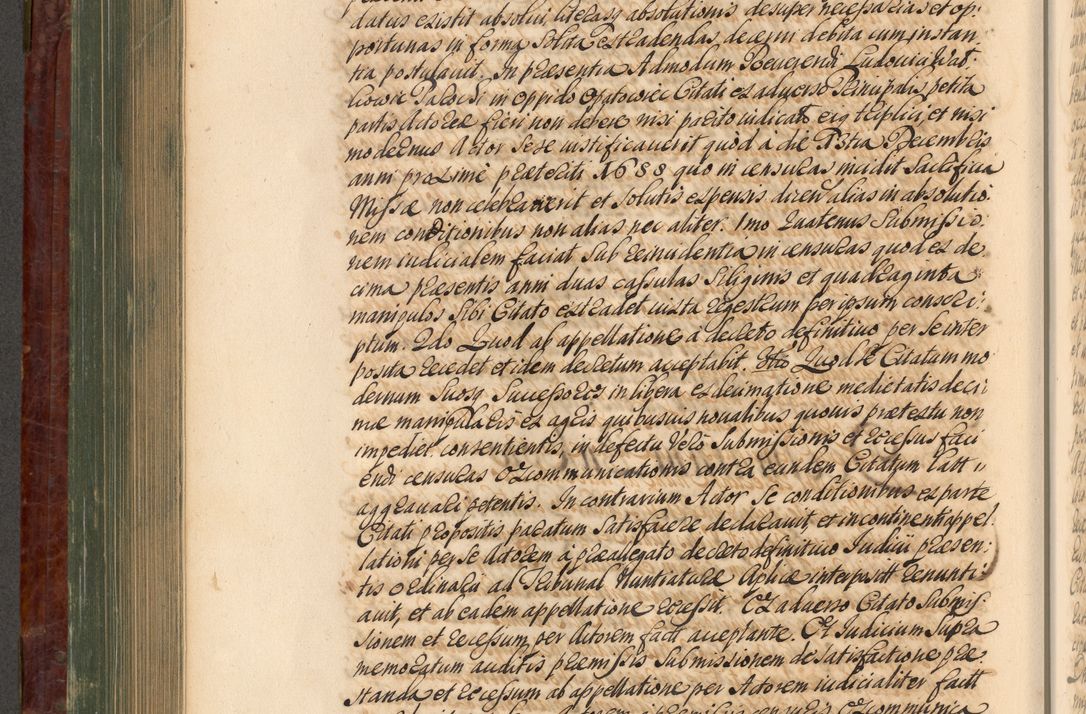 datus existit absolui, literasq absolutionis desuper necessarias et op
portunas in forma Solita extradendas decerni debita cum instan
tia postulauit. In praesentia Admodum Reuerendi Ludouici
Paroch in oppido Opatowiec Citati ex aduerso Principalis petita
partis Actoreae fieri non debere nisi prius iudicato eiq triplici, et nisi
modernus Actor Sese iustificauerit quòd à die 13tia Decembris
anni proximè praeteriti 1688 quo in censuras incidit Sacrificia
Missae non celebrauerit et Solutis expensis alias in absolutio
nem conditionibus non alias nec aliter. 1mo Quatenus Submissio
nem iudicialem faciat Sub reincidentia in censuras quod ex de
cima praesentis anni duas cassulas Siliginis et quadraginta
manipulos Sibi Citato extradet iuxta regestrum per ipsum conscri
ptum. 2do Quod ab appellatione à decreto definitiuo per Se inter
posita recedet et idem decretum acceptabit. 3tio Quod Citatum mo
dernum Suosq Successores in libera ex decimatione medietatis deci
mae manipularis ex agris quibusuis noualibus quouis praetextu non
impediet. consentientis, in defectu Verò Submissionis et recessus faci
endi censuras Excommunicationis contra eundem Citatum latt
aggrauari petentis. In contrarium Actor Se conditionibus ex parte
Citati propositis paratum Satisfacere declarauit, et incontinenti appel
lationi per Se Actorem à praeallegato decreto definitiuo Iudicii praesen
tis Ordinarii ad Tribunal Nuntiaturae Aplicae interpositt renunti
auit, et ab eadem appellatione recessit. Ex aduerso Citato Submis
sionem et recessum per Actorem factt acceptante. Et Iudicium Supra
memoratum auditis praemissis Submissionem de Satisfactione prae
standa et recessum ab appellatione per Actorem iudicialiter factt